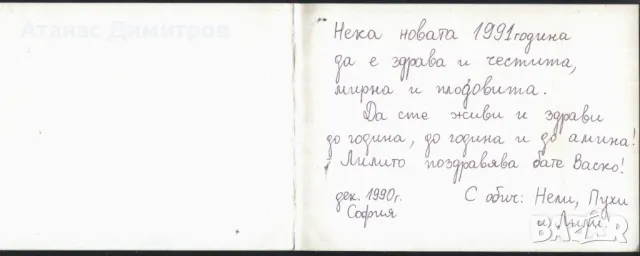 Атанас Димитров
Нека новата 1991 година
да е здрава и честита,
мирна и плодовита.
Да сте живи и здрави
до година, до година и до амина!
Лилито поздравява бате Васко!
дек. 1990г.
София
С обич: Нели, Пухи
и Лили
BAZAR